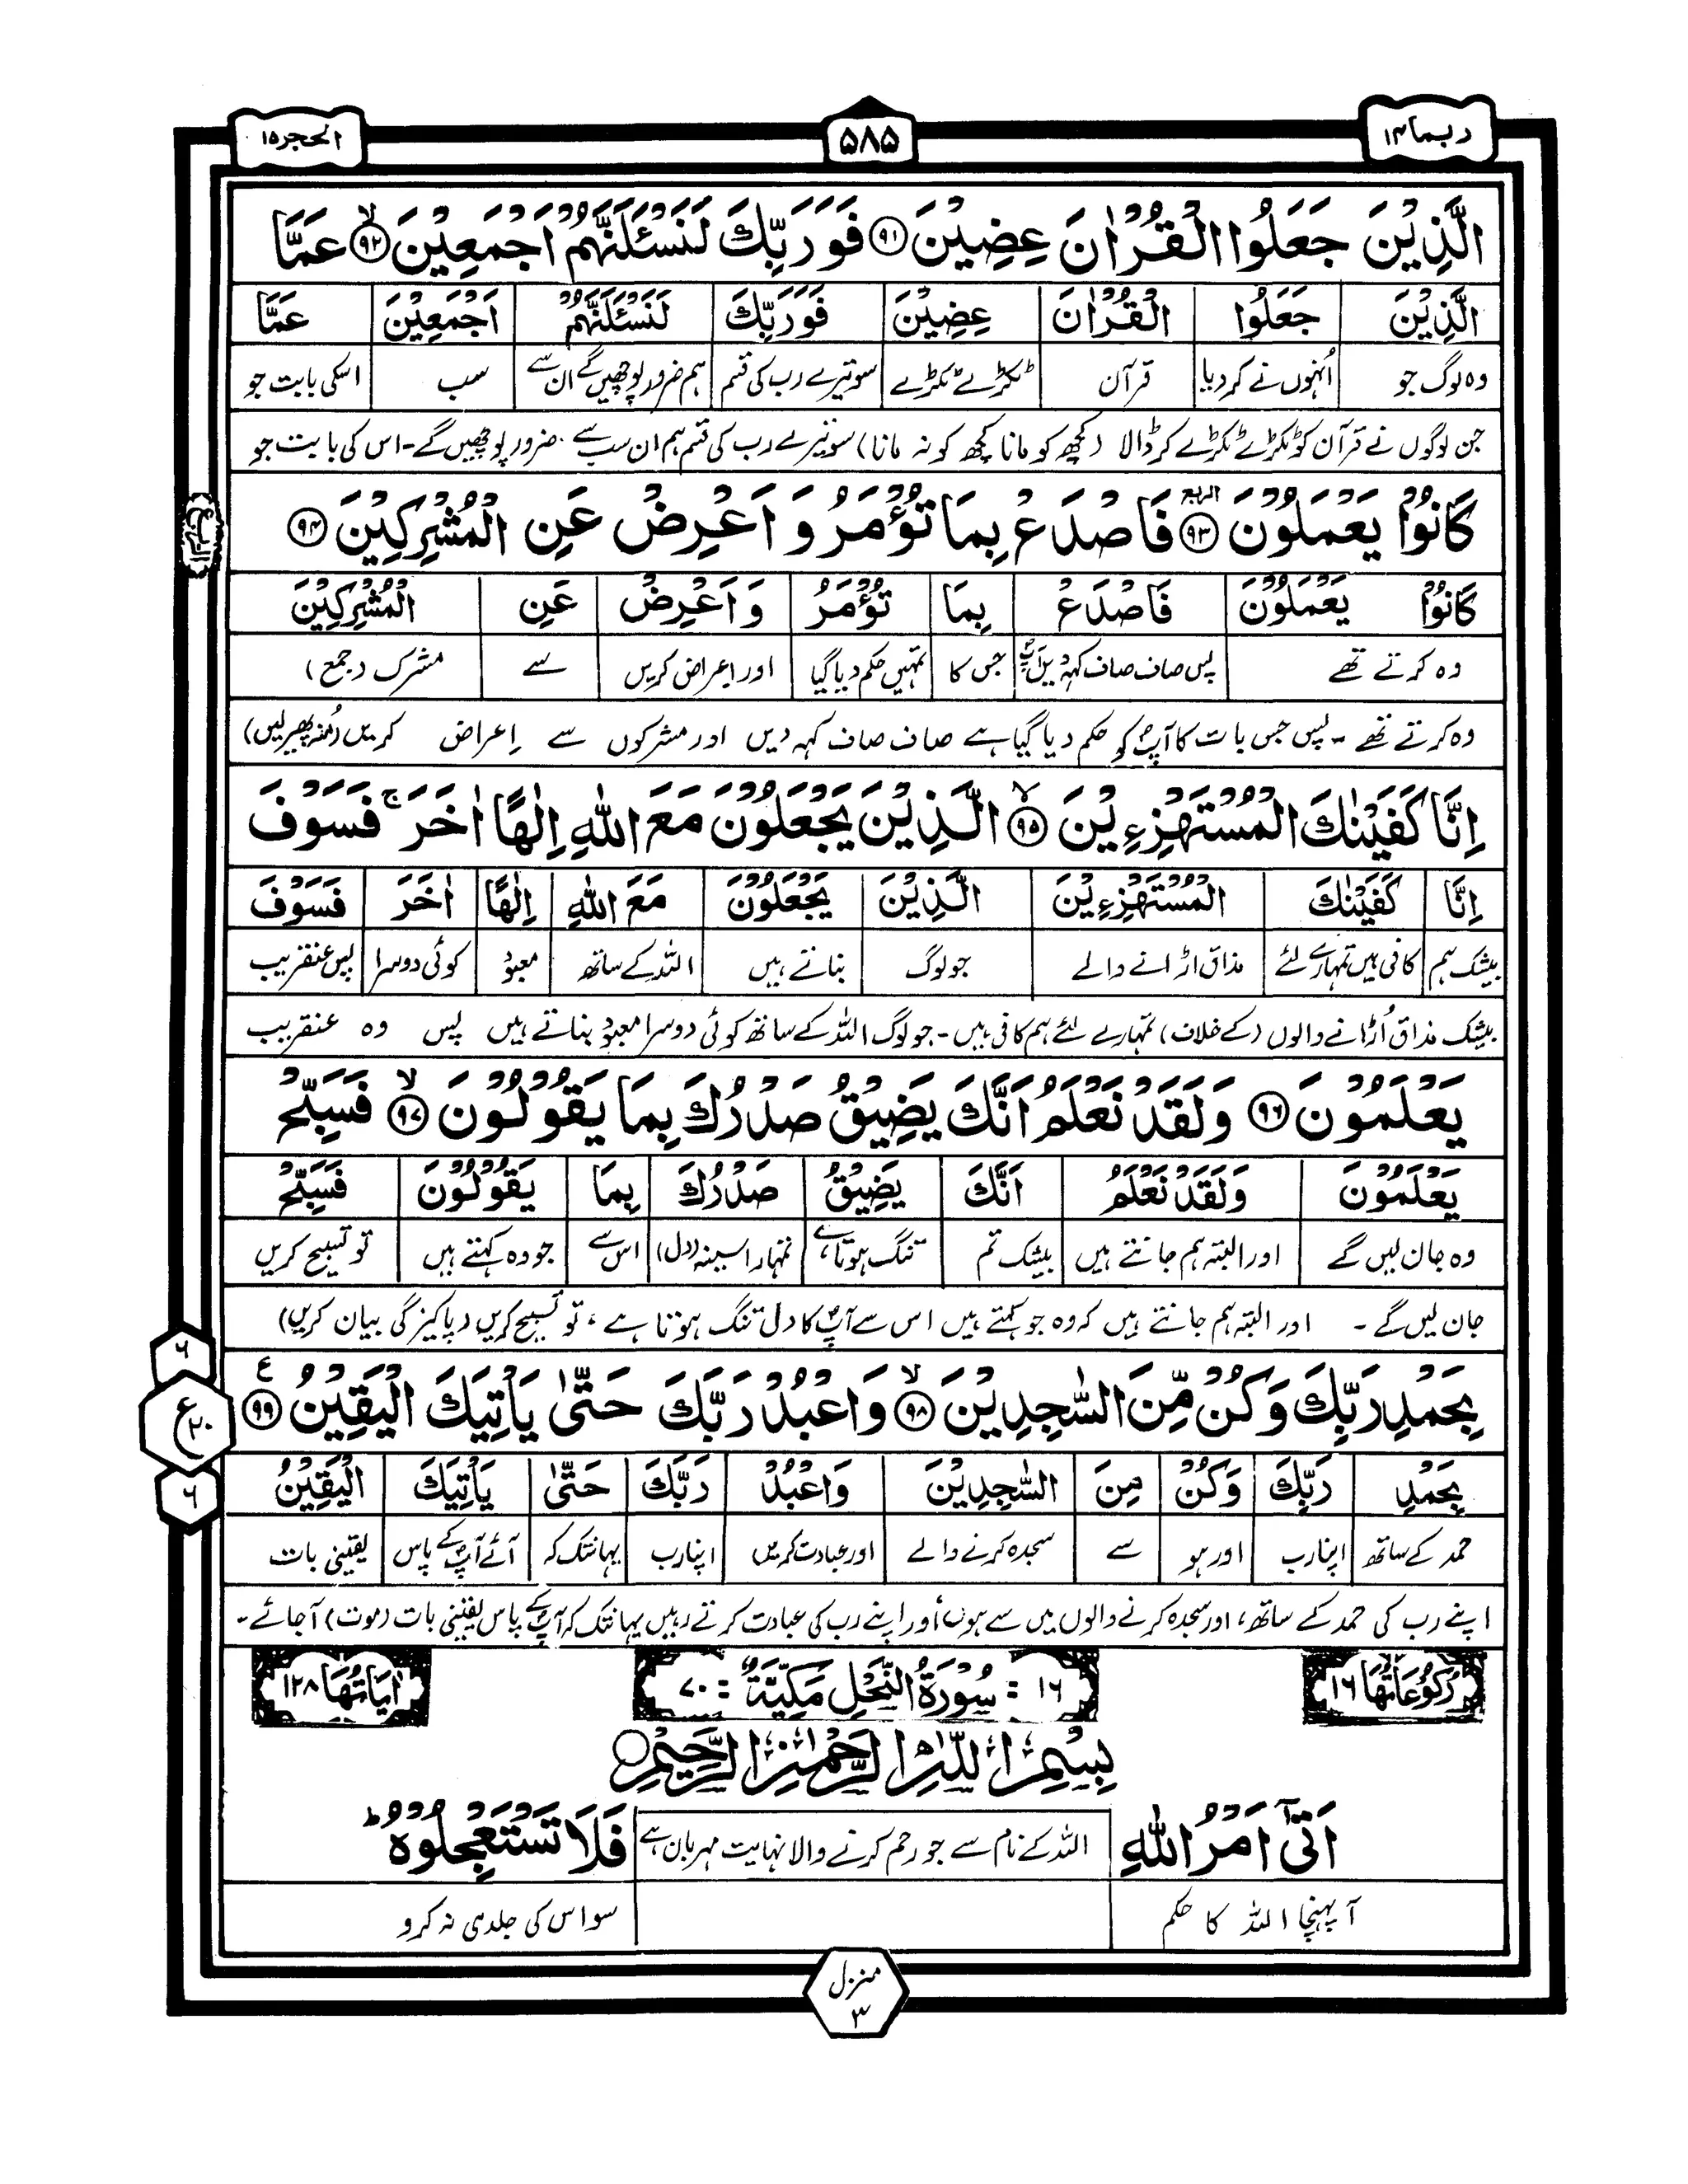 ربما ۱۴
۵۸۵
الحجر ۱۵
الَّذِيْنَ جَعَلُوا الْقُرْاٰنَ عِضِيْنَ ﴿۹۱﴾ فَوَرَبِّكَ لَنَسْـَٔلَنَّهُمْ اَجْمَعِيْنَ ﴿۹۲﴾ۙ عَمَّا
الَّذِيْنَ جَعَلُوا الْقُرْاٰنَ عِضِيْنَ فَوَرَبِّكَ لَنَسْـَٔلَنَّهُمْ اَجْمَعِيْنَ عَمَّا
وہ لوگ جو اُنہوں نے کر دیا قرآن ٹکڑے ٹکڑے سو تیرے رب کی قسم ہم ضرور پوچھیں گے ان سے سب اسکی بابت جو
جن لوگوں نے قرآن کو ٹکڑے ٹکڑے کر ڈالا (کچھ کو مانا کچھ کو نہ مانا) سو تیرے رب کی قسم ہم ان سب سے ضرور پوچھیں گے۔ اس کی بابت جو
كَانُوْا يَعْمَلُوْنَ ﴿۹۳﴾ الربع فَاصْدَعْ بِمَا تُؤْمَرُ وَاَعْرِضْ عَنِ الْمُشْرِكِيْنَ ﴿۹۴﴾
الربع
كَانُوْا يَعْمَلُوْنَ فَاصْدَعْ بِمَا تُؤْمَرُ وَاَعْرِضْ عَنِ الْمُشْرِكِيْنَ
وہ کرتے تھے پس صاف صاف کہہ دیں آپؐ جس کا تمہیں حکم دیا گیا اور اعراض کریں سے مشرک (جمع)
وہ کرتے تھے۔ پس جس بات کا آپؐ کو حکم دیا گیا ہے صاف صاف کہہ دیں اور مشرکوں سے اِعراض کریں (مُنہ پھیر لیں)
اِنَّا كَفَيْنٰكَ الْمُسْتَهْزِءِيْنَ ﴿۹۵﴾ۙ الَّذِيْنَ يَجْعَلُوْنَ مَعَ اللّٰهِ اِلٰهًا اٰخَرَ ۚ فَسَوْفَ
اِنَّا كَفَيْنٰكَ الْمُسْتَهْزِءِيْنَ الَّذِيْنَ يَجْعَلُوْنَ مَعَ اللّٰهِ اِلٰهًا اٰخَرَ فَسَوْفَ
بیشک ہم کافی ہیں تمہارے لئے مذاق اڑانے والے جو لوگ بناتے ہیں اللہ کے ساتھ معبود کوئی دوسرا پس عنقریب
بیشک مذاق اُڑانے والوں (کے خلاف) تمہارے لئے ہم کافی ہیں۔ جو لوگ اللہ کے ساتھ کوئی دوسرا معبود بناتے ہیں پس وہ عنقریب
يَعْلَمُوْنَ ﴿۹۶﴾ وَلَقَدْ نَعْلَمُ اَنَّكَ يَضِيْقُ صَدْرُكَ بِمَا يَقُوْلُوْنَ ﴿۹۷﴾ۙ فَسَبِّحْ
يَعْلَمُوْنَ وَلَقَدْ نَعْلَمُ اَنَّكَ يَضِيْقُ صَدْرُكَ بِمَا يَقُوْلُوْنَ فَسَبِّحْ
وہ جان لیں گے اور البتہ ہم جانتے ہیں بیشک تم تنگ ہوتا ہے تمہارا سینہ (دل) اس سے جو وہ کہتے ہیں تو تسبیح کریں
جان لیں گے۔ اور البتہ ہم جانتے ہیں کہ وہ جو کہتے ہیں اس سے آپؐ کا دل تنگ ہوتا ہے، تو تسبیح کریں (پاکیزگی بیان کریں)
بِحَمْدِ رَبِّكَ وَكُنْ مِّنَ السّٰجِدِيْنَ ﴿۹۸﴾ۙ وَاعْبُدْ رَبَّكَ حَتّٰى يَاْتِيَكَ الْيَقِيْنُ ﴿۹۹﴾ ع
۶
ع ۲۰
۶
بِحَمْدِ رَبِّكَ وَكُنْ مِنَ السّٰجِدِيْنَ وَاعْبُدْ رَبَّكَ حَتّٰى يَاْتِيَكَ الْيَقِيْنُ
حمد کے ساتھ اپنا رب اور ہو سے سجدہ کرنے والے اور عبادت کریں اپنا رب یہانتک کہ آئے آپؐ کے پاس یقینی بات
اپنے رب کی حمد کے ساتھ، اور سجدہ کرنے والوں میں سے ہوں، اور اپنے رب کی عبادت کرتے رہیں یہانتک کہ آپؐ کے پاس یقینی بات (موت) آجائے۔
رُكُوْعَاتُهَا ۱۶
۱۶ : سُوْرَةُ النَّحْلِ مَكِّيَّةٌ : ۷۰
اٰيَاتُهَا ۱۲۸
بِسْمِ اللّٰهِ الرَّحْمٰنِ الرَّحِيْمِ
اَتٰٓى اَمْرُ اللّٰهِ فَلَا تَسْتَعْجِلُوْهُ ؕ
اللہ کے نام سے جو رحم کرنے والا نہایت مہربان ہے
آ پہنچا اللہ کا حکم سو اس کی جلدی نہ کرو
منزل
۳